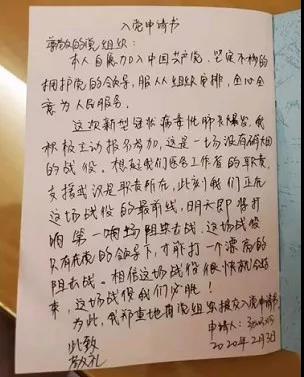 入党申请书
尊敬的党组织：
本人自愿加入中国共产党，坚定不移的
拥护党的领导，服从组织安排，全心全
意为人民服务。
这次新型冠状病毒性肺炎爆发，我
积极主动报名参加，这是一场没有硝烟
的战役。想起我们医务工作者的职责，
支援武汉是职责所在，此刻我们正在
这场战役的最前线，明天即将打
响第一响场阻击战。这场战役
只有在党的领导下，才能打一个漂亮的
阻击战。相信这场战役很快就会结
束，这场战役我们必胜！
为此，我郑重地向党组织递交入党申请书
此致
敬礼
申请人：
2020年2月3日